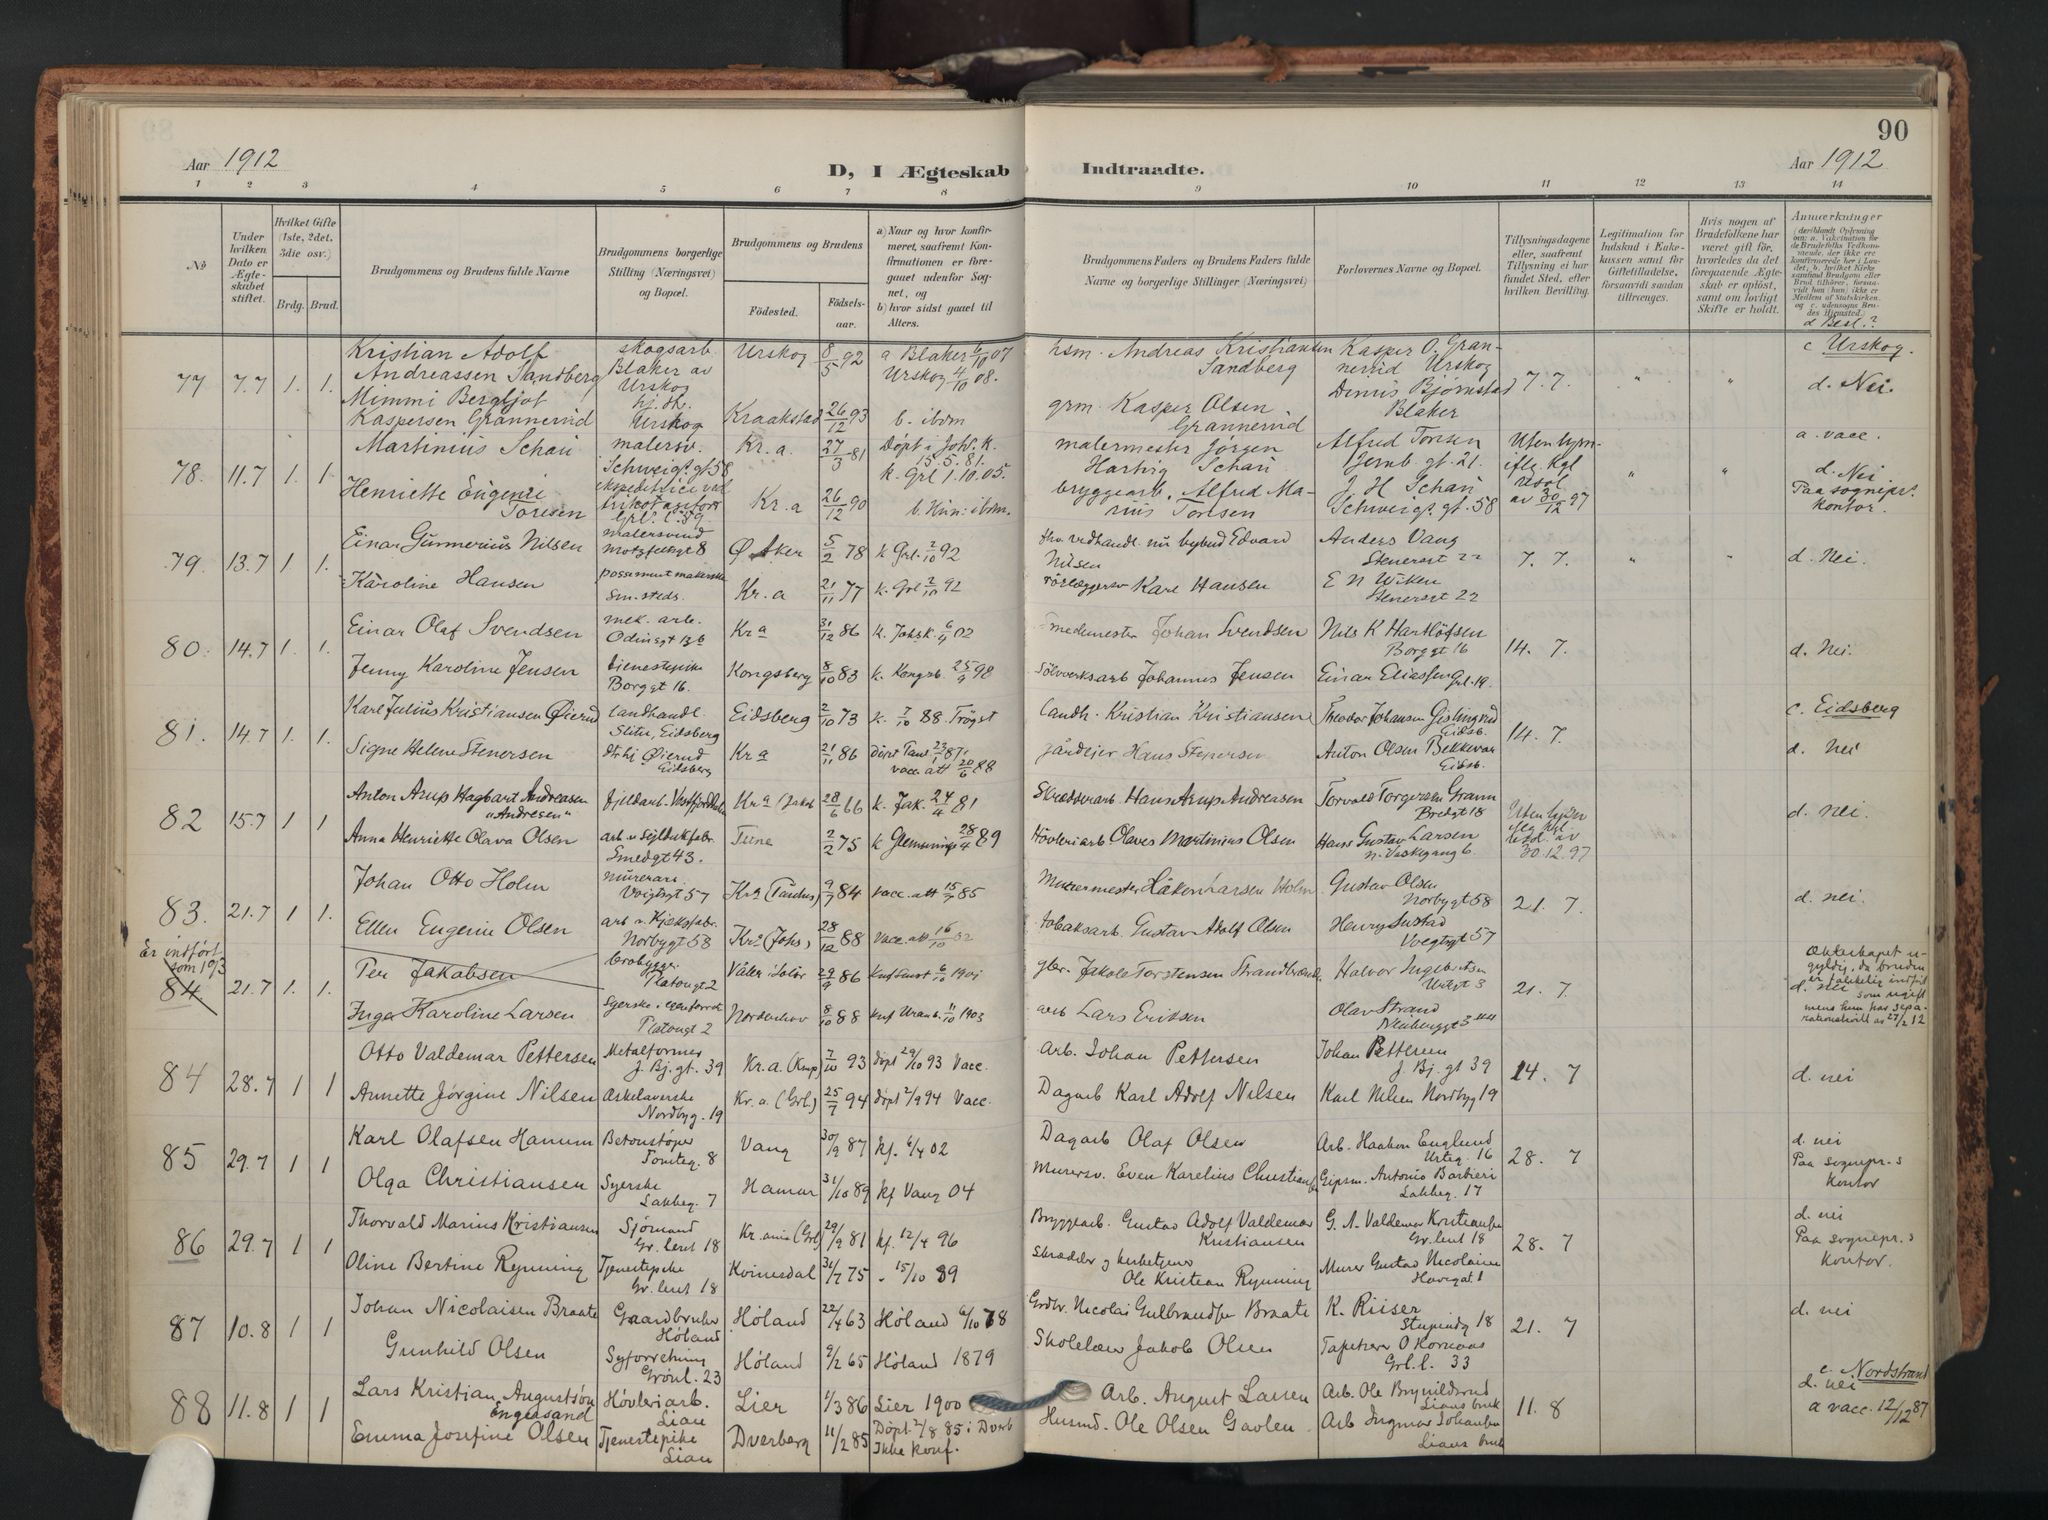 90
Aar 1912
D, I Ægteskab Indtraadte.
Aar 1912
1 2 3 4 5 6 7 8 9 10 11 12 13 14
№
Under hvilken Dato er Ægteskabet stiftet.
Hvilket Gifte (1ste, 2det, 3die osv.)
Brdg. Brud.
Brudgommens og Brudens fulde Navne
Brudgommens borgerlige Stilling (Næringsvei) og Bopæl.
Brudgommens og Brudens
Födested.
Födselsaar.
a) Naar og hvor konfirmeret, saafremt Konfirmationen er foregaaet udenfor Sognet, og
b) hvor sidst gaaet til Alters.
Brudgommens Faders og Brudens Faders fulde Navne og borgerlige Stillinger (Næringsvei)
Forlovernes Navne og Bopæl.
Tillysningsdagene eller, saafremt Tillysning ei har fundet Sted, efter hvilken Bevilling.
Legitimation for Indskud i Enkekassen samt for Giftetilladelse, forsaavidt saadan tiltrænges.
Hvis nogen af Brudefolkene har været gift før, hvorledes da det foregaaende Ægteskab er opløst, samt om lovligt Skifte er holdt.
Anmærkninger
(deriblandt Oplysning om: a. Vaccination for de Brudefolks Vedkommende, der ikke ere konfirmerede her i Landet; b. hvilket Kirkesamfund Brudgom eller Brud tilhører, forsaavidt han (hun) ikke er Medlem af Statskirken og c. udensogns Brudes Hjemsted.)
d Besl.?
77 7.7 1. 1. Kristian Adolf Andreassen Sandberg skogsarb. Blaker av Urskog Urskog 8/5 92 a Blaker 6/10 07 Urskog 4/10 08. hsm. Andreas Kristiansen Sandberg Kasper O. Grannerud Urskog 7.7. " " c Urskog.
Mimmi Bergljot Kaspersen Grannerud hj. dt. Urskog Kraakstad 26/12 93 b. ibdm grm. Kasper Olsen Grannerud Bjørnstad Blaker d. Nei.
78. 11.7 1. 1. Martinius Schau malersv. Schweigs. gt 58 Kr.a. 27/3 81 Døpt i Joh. K. 15.5.81. k. Grl 1.10.05. malermester Jørgen Hartvig Schau Alfred Torisen Jernb. gt. 21. Uten lysn. iflg. Kgl resol av 30/12 97 " " a. vacc.
Henriette Eugenie Torisen ekspeditrice ved trikotagefor. Grl. l. 59 Kr.a 26/12 90 b. Hun: ibdm. bryggearb. Alfred Marius Torisen J H Schau Schweigs. gt. 58 d. Nei Paa sognepr. kontor.
79. 13.7 1 1. Einar Gunnerius Nilsen malersvend Motzfeldtgt 8 Ø Aker 5/2 78 k Grl. 2/10 92 fhv. vedhandl. nu bybud Edvard Nilsen Anders Vang Stenersgt 22 7. 7. " " d. Nei.
Karoline Hansen possementmakerske sm. steds. Kr.a 21/11 77 k. Grl 2/10 92 rørlæggersv Karl Hansen E N Wiken Stenersgt 22
80. 14.7 1. 1. Einar Olaf Svendsen mek. arb. Odinsgt 13 b Kr a 31/12 86 k. Johsk. 6/4 02 smedemester Johan Svendsen Nils K Hartlöfsen Borggt 16 14. 7. d. Nei.
Jenny Karoline Jensen tjenestepike Borggt 16. Kongsberg 8/10 83 k. Kongsb. 25/9 98 Sölvverksarb Johannes Jensen Einar Eliassen Grl. 19.
81. 14.7 1. 1. Karl Julius Kristiansen Øierud landhandl. Slitu, Eidsberg Eidsberg 2/10 73 k. 7/10 88 Trøgst Landh. Kristian Kristiansen Theodor Johansen Gislingrud Eidsb. 14. 7. c. Eidsberg
Signe Helene Stenersen Øierud Eidsberg Kr a 21/11 86 vacc. att 20/6 88 gårdeier Hans Stenersen Anton Olsen Bekkevar Eidsb. d. nei
82 15.7 1 1 Anton Arup Hagbart Andreasen "Andresen" fjeldarb. Vestfjorddalen Kr a (Jakob 28/6 66 k. Jak. 24/4 81 Skrædderarb. Hans Arup Andreasen Torvald Torgersen Grann Bredgt 18 Uten lysn iflg kgl resol. av 30.12.97 d. nei.
Anna Henriette Olava Olsen arb v. Seildukfabr. Smedgt 43. Tune 2/2 75 k Glemminge 28/4 89 Høvleriarb Olaves Martinius Olsen Hans Gustav Larsen n. Vaskegang 6.
83. 21.7 1 1. Johan Otto Holm murerarb. Voigtsgt 57 Kr a (Paulus) 9/7 84 vacc. att 15/7 85 Murermester Håken Larsen Holm Gustav Olsen Norbygt 58 21. 7. d. nei.
Ellen Eugenie Olsen arb v. Kjeksfabr. Norbygt 58 Kr a (Johs) 28/12 88 Vacc. att 16/10 02 tobaksarb. Gustav Adolf Olsen Henry Sustad Voegtsgt 57
Er indført som 103
84 21.7 1. 1. Per Jakobsen brobygger Platougt 2 Våler i Solør 29/9 86 6/10 1901 gbr. Jakob Torstensen Strandbraend. Halvor Ingebretsen Urtgt 3 21. 7. Ekteskapet ugyldig, da bruden er falskelig indført som ugift mens hun har separationsbevill. av 27/2 12
Inga Karoline Larsen Syerske Platougt 2 Norderhov 8/10 88 11/10 1903 arb Lars Eriksen Olav Strand Neubergsgt 3 d. nei
84 28.7 1 1 Otto Valdemar Pettersen Metalformer J. Bj. gt. 39 Kr. a. (Kamp) 7/10 93 Døpt 29/10 93 Vacc. Arb. Johan Pettersen Johan Pettersen J. Bj. gt 39 14. 7 d. nei
Annette Jörgine Nilsen Askelaverske Nordbyg. 19 Kr. a. (Grl.) 25/7 94 Døpt 2/9 94 Vacc. Dagarb Karl Adolf Nilsen Karl Nilsen Nordbyg 19
85 29.7 1 1 Karl Olafsen Hanum Betonstøper Tomteg. 8 Vang 30/9 87 kf. 6/4 02 Dagarb Olaf Olsen Arb. Haakon Englund Urteg. 16 28. 7 d. nei
Olga Christiansen Syerske Lakkeg. 7 Hamar 31/10 89 kf Vang 04 Murersv. Even Karelius Christiansen Gipsm. Antonio Barbieri Lakkeg. 17 Paa sognepr.s kontor
86 29.7 1 1 Thorvald Marius Kristiansen Sjömand Gr. leret 18 Kr. ania (Grl) 29/9 81 kf. 12/4 96 Bryggearb. Gustav Adolf Valdemar Kristiansen G. A. Valdemar Kristiansen Gr. leret 18 28. 7 d. nei
Oline Bertine Rynning Tjenestepike Gr. leret 18 Kvinesdal 31/7 75 " 15/10 89 Skrædder og kirketjener Ole Kristian Rynning Murer Gustav Nicolaisen Havegt. 1 Paa sognepr.s kontor.
87 10.8 1 1 Johan Nicolaisen Braate Gaardbruker Höland Höland 22/4 63 Höland 6/10 78 Grdbr. Nicolai Gulbrandsen Braate K. Riiser Stupindg 18 21. 7 d. nei
Gunhild Olsen Syforretning Grönl. 23 Höland 9/2 65 Höland 1879 Skolelær Jakob Olsen Tapetserer O Kornaas Grl. l. 33
88 11.8 1 1 Lars Kristian Augustsön Engersand Hövleriarb. Lian Lier 1/3 86 Lier 1900 Arb. August Larsen Arb. Ole Brynildsrud Lians bruk 11. 8 c. Nordstrand d. nei
Emma Josefine Olsen Tjenestepike Lian Dverberg 11/2 85 Døpt 2/8 85 i Dverb Ikke konf. Husmd. Ole Olsen Gavlen Arb Ingmar Johansen Lians bruk a vacc. 12/12 87